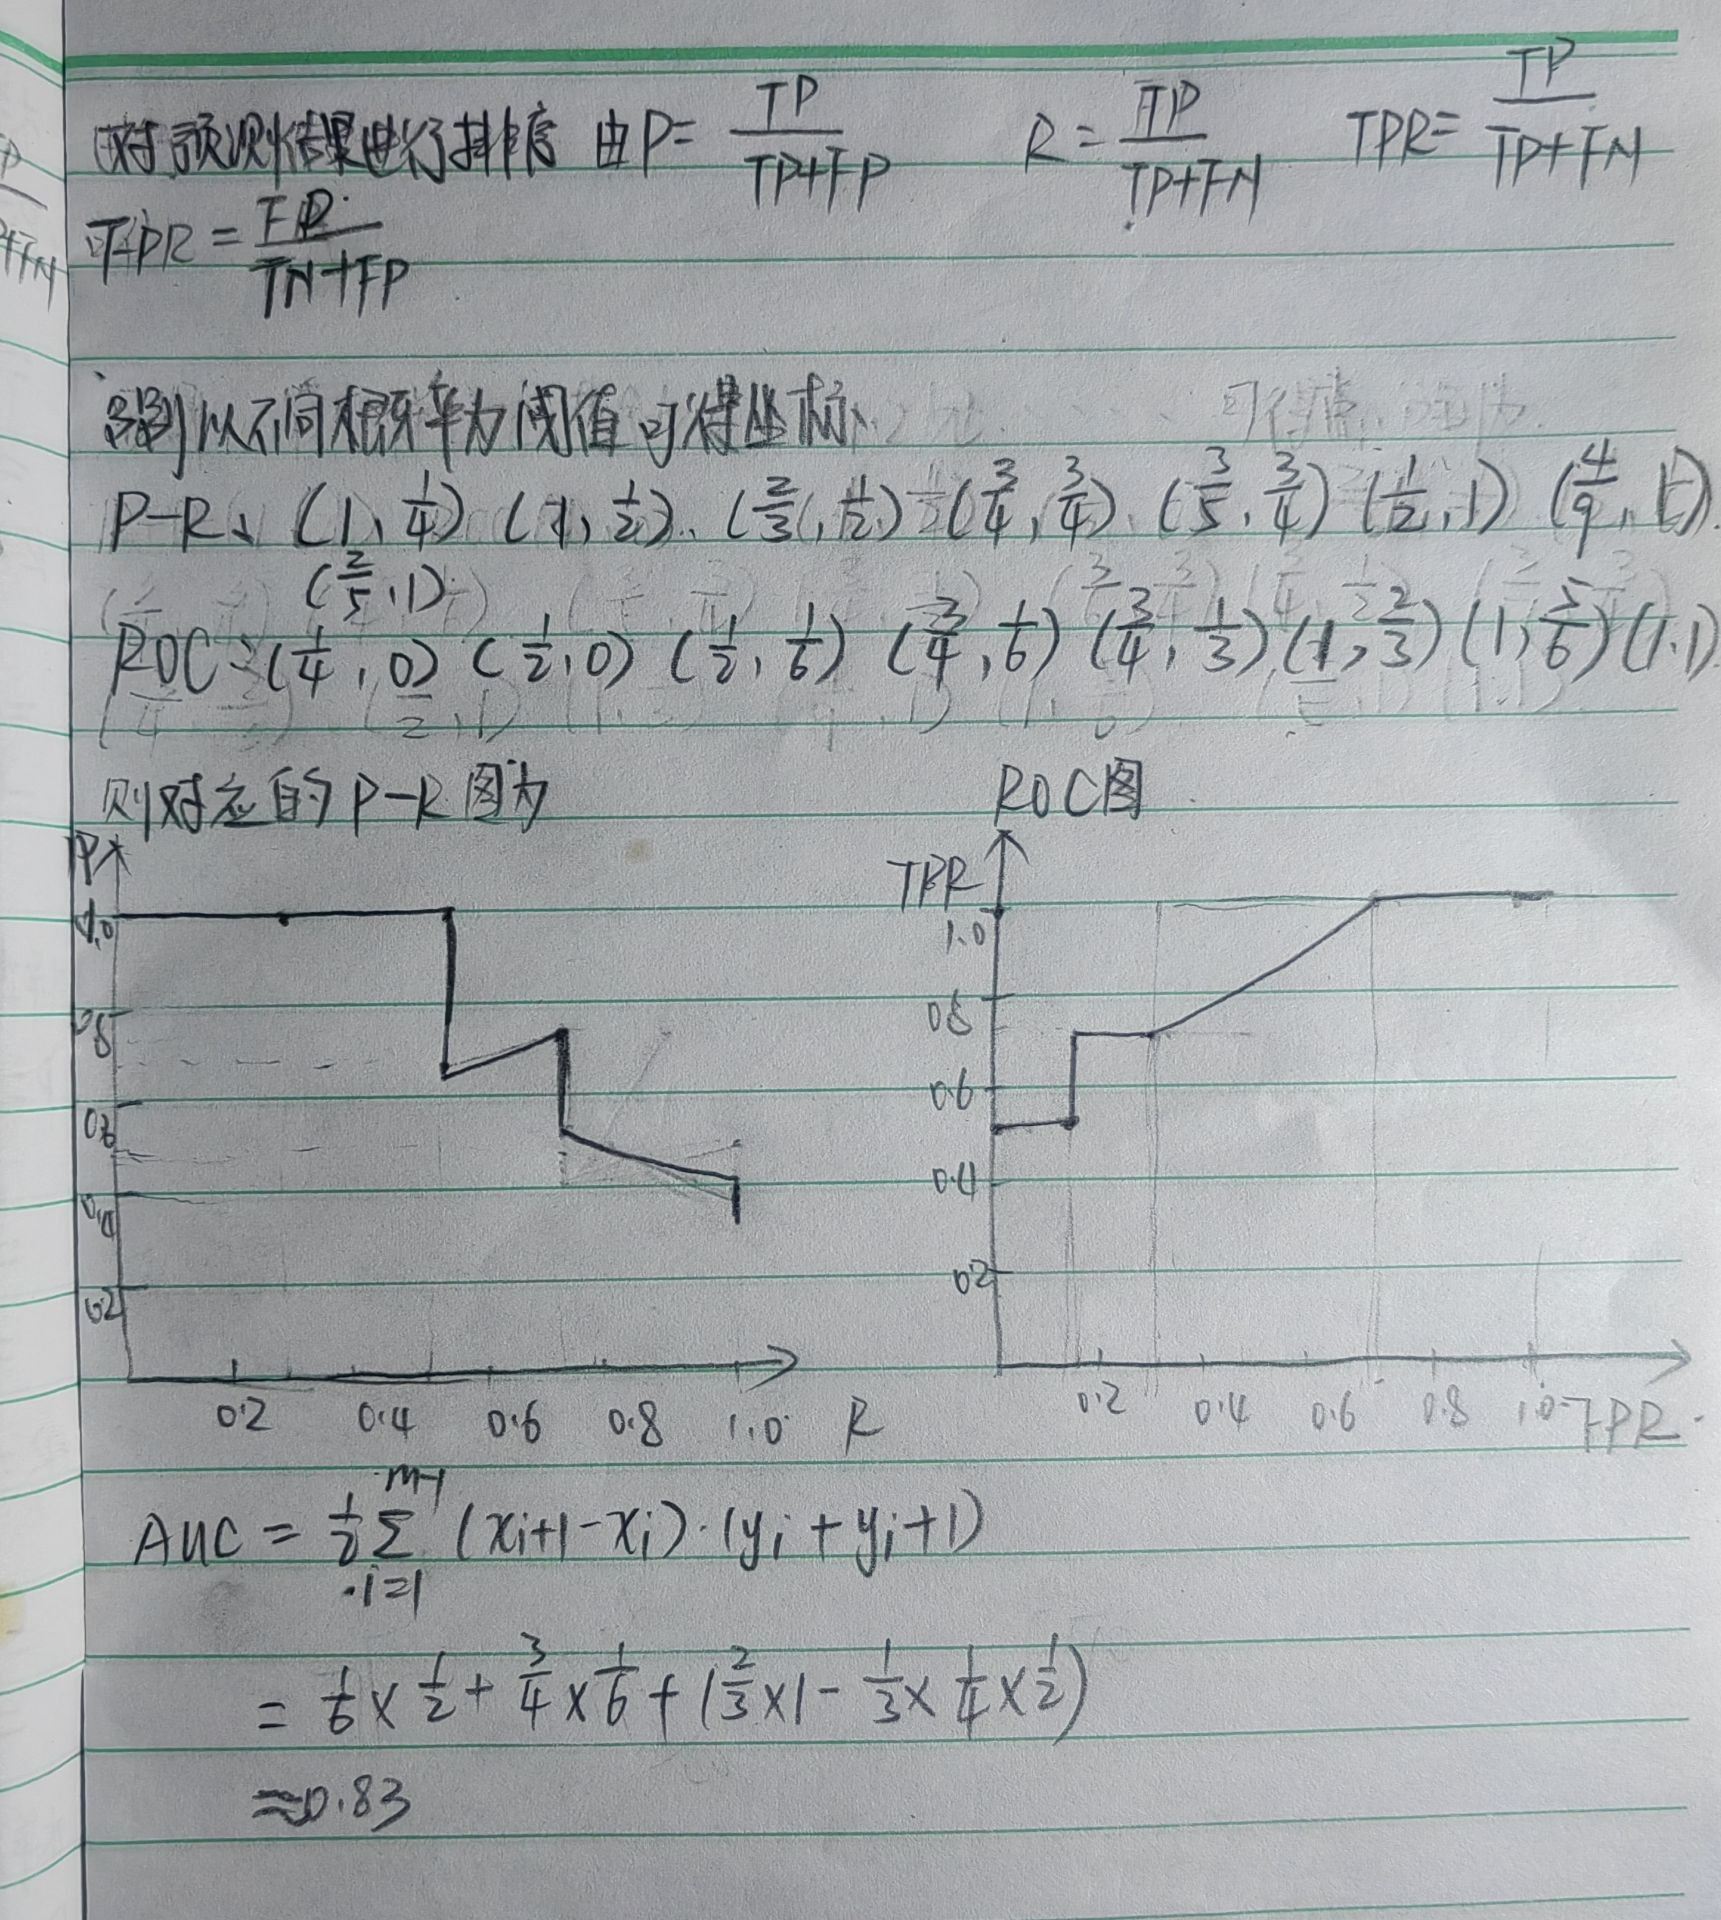 对预测结果进行排序 由P= TP/(TP+FP) R= TP/(TP+FN) TPR= TP/(TP+FN)
FPR= FP/(TN+FP)
以不同概率为阈值可得坐标
P-R: (1, 1/4) (1, 1/2). (2/3, 1/2) (3/4, 3/4). (3/5, 3/4) (1/2, 1) (4/9, 1).
(2/5, 1)
ROC: (1/4, 0) (1/2, 0) (1/2, 1/6) (3/4, 1/6) (3/4, 1/3) (1, 2/3) (1, 5/6) (1.1)
则对应的P-R图为 ROC图
P TPR
1.0 1.0
0.8 0.8
0.6 0.6
0.4 0.4
0.2 0.2
0.2 0.4 0.6 0.8 1.0 R 0.2 0.4 0.6 0.8 1.0 FPR
AUC = 1/2 Σ_{i=1}^{m-1} (x_{i+1} - x_i)·(y_i + y_{i+1})
= 1/6 × 1/2 + 3/4 × 1/6 + (2/3 × 1 - 1/3 × 1/4 × 1/2)
≈0.83